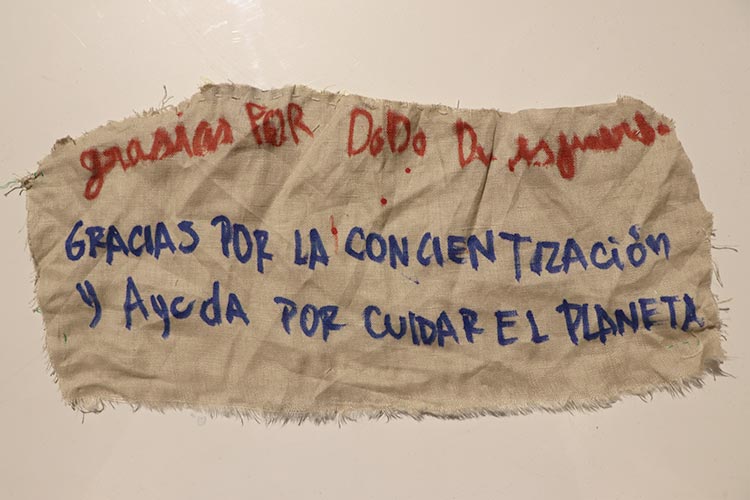 grasias POR DoDo Du esfuerso
GRACIAS POR LA CONCIENTIZACIÓN
Y AYUDA POR CUIDAR EL PLANETA